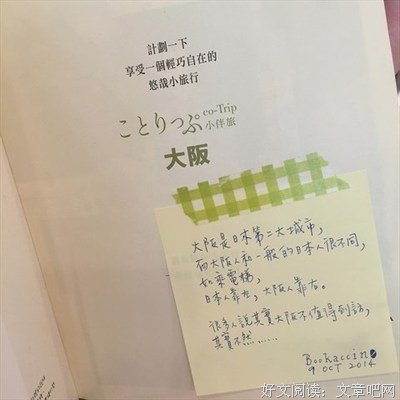 計劃一下
享受一個輕巧自在的
悠哉小旅行
ことりっぷ co-Trip
小伴旅
大阪
大阪是日本第二大城市,
而大阪人和一般的日本人很不同,
如乘電梯,
日本人靠左,大阪人靠右。
很多人說其實大阪不值得到訪,
其實不然......
Bookaccino
9 OCT 2014
好文阅读：文章吧网